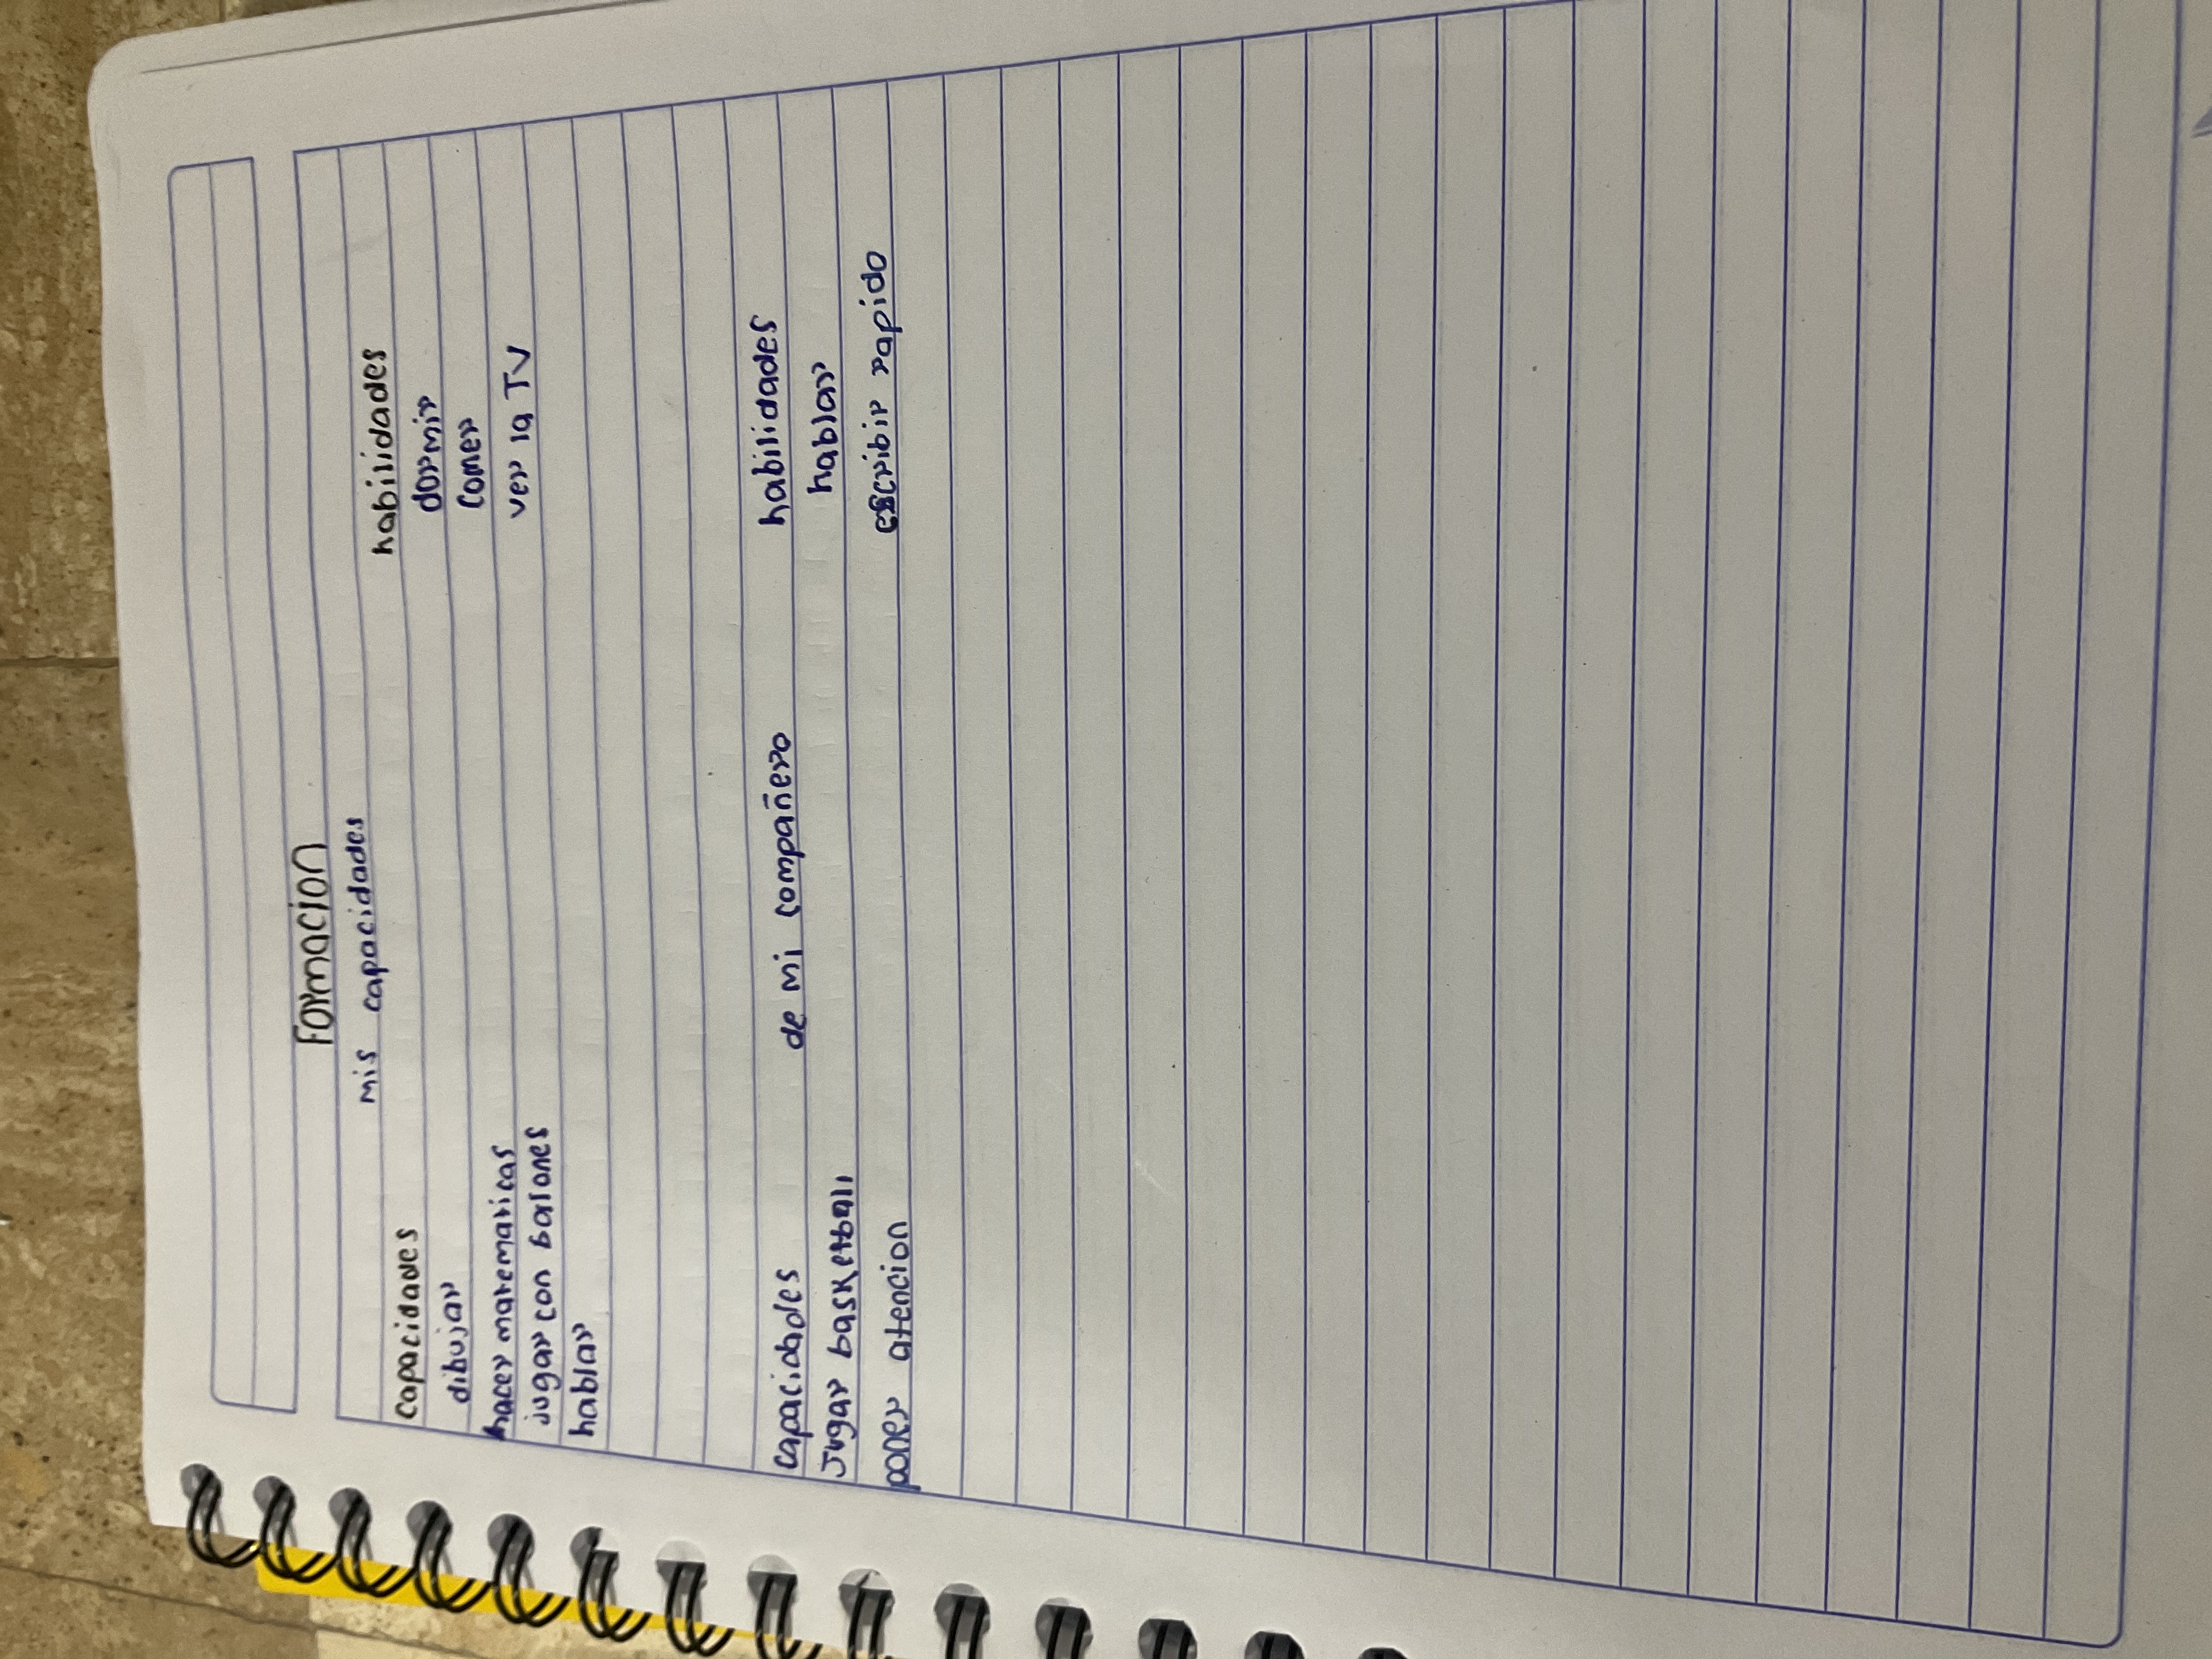 Formacion
mis capacidades
capacidades habilidades
dibujar dormir
hacer matematicas comer
jugar con balones ver la TV
hablar
capacidades de mi compañero habilidades
Jugar basketball hablar
poner atencion escribir rapido